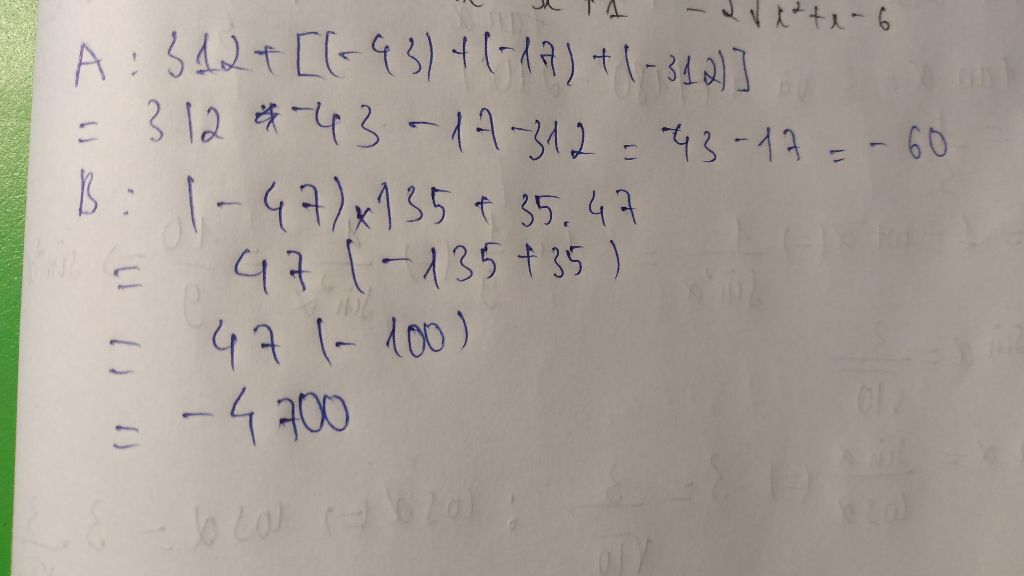 - 2√x²+x-6
A : 312 + [(-43) + (-17) + (-312)]
= 312 -43 - 17 - 312 = -43 - 17 = - 60
B : (- 47) x 135 + 35. 47
= 47 (- 135 + 35)
= 47 (- 100)
= - 4700